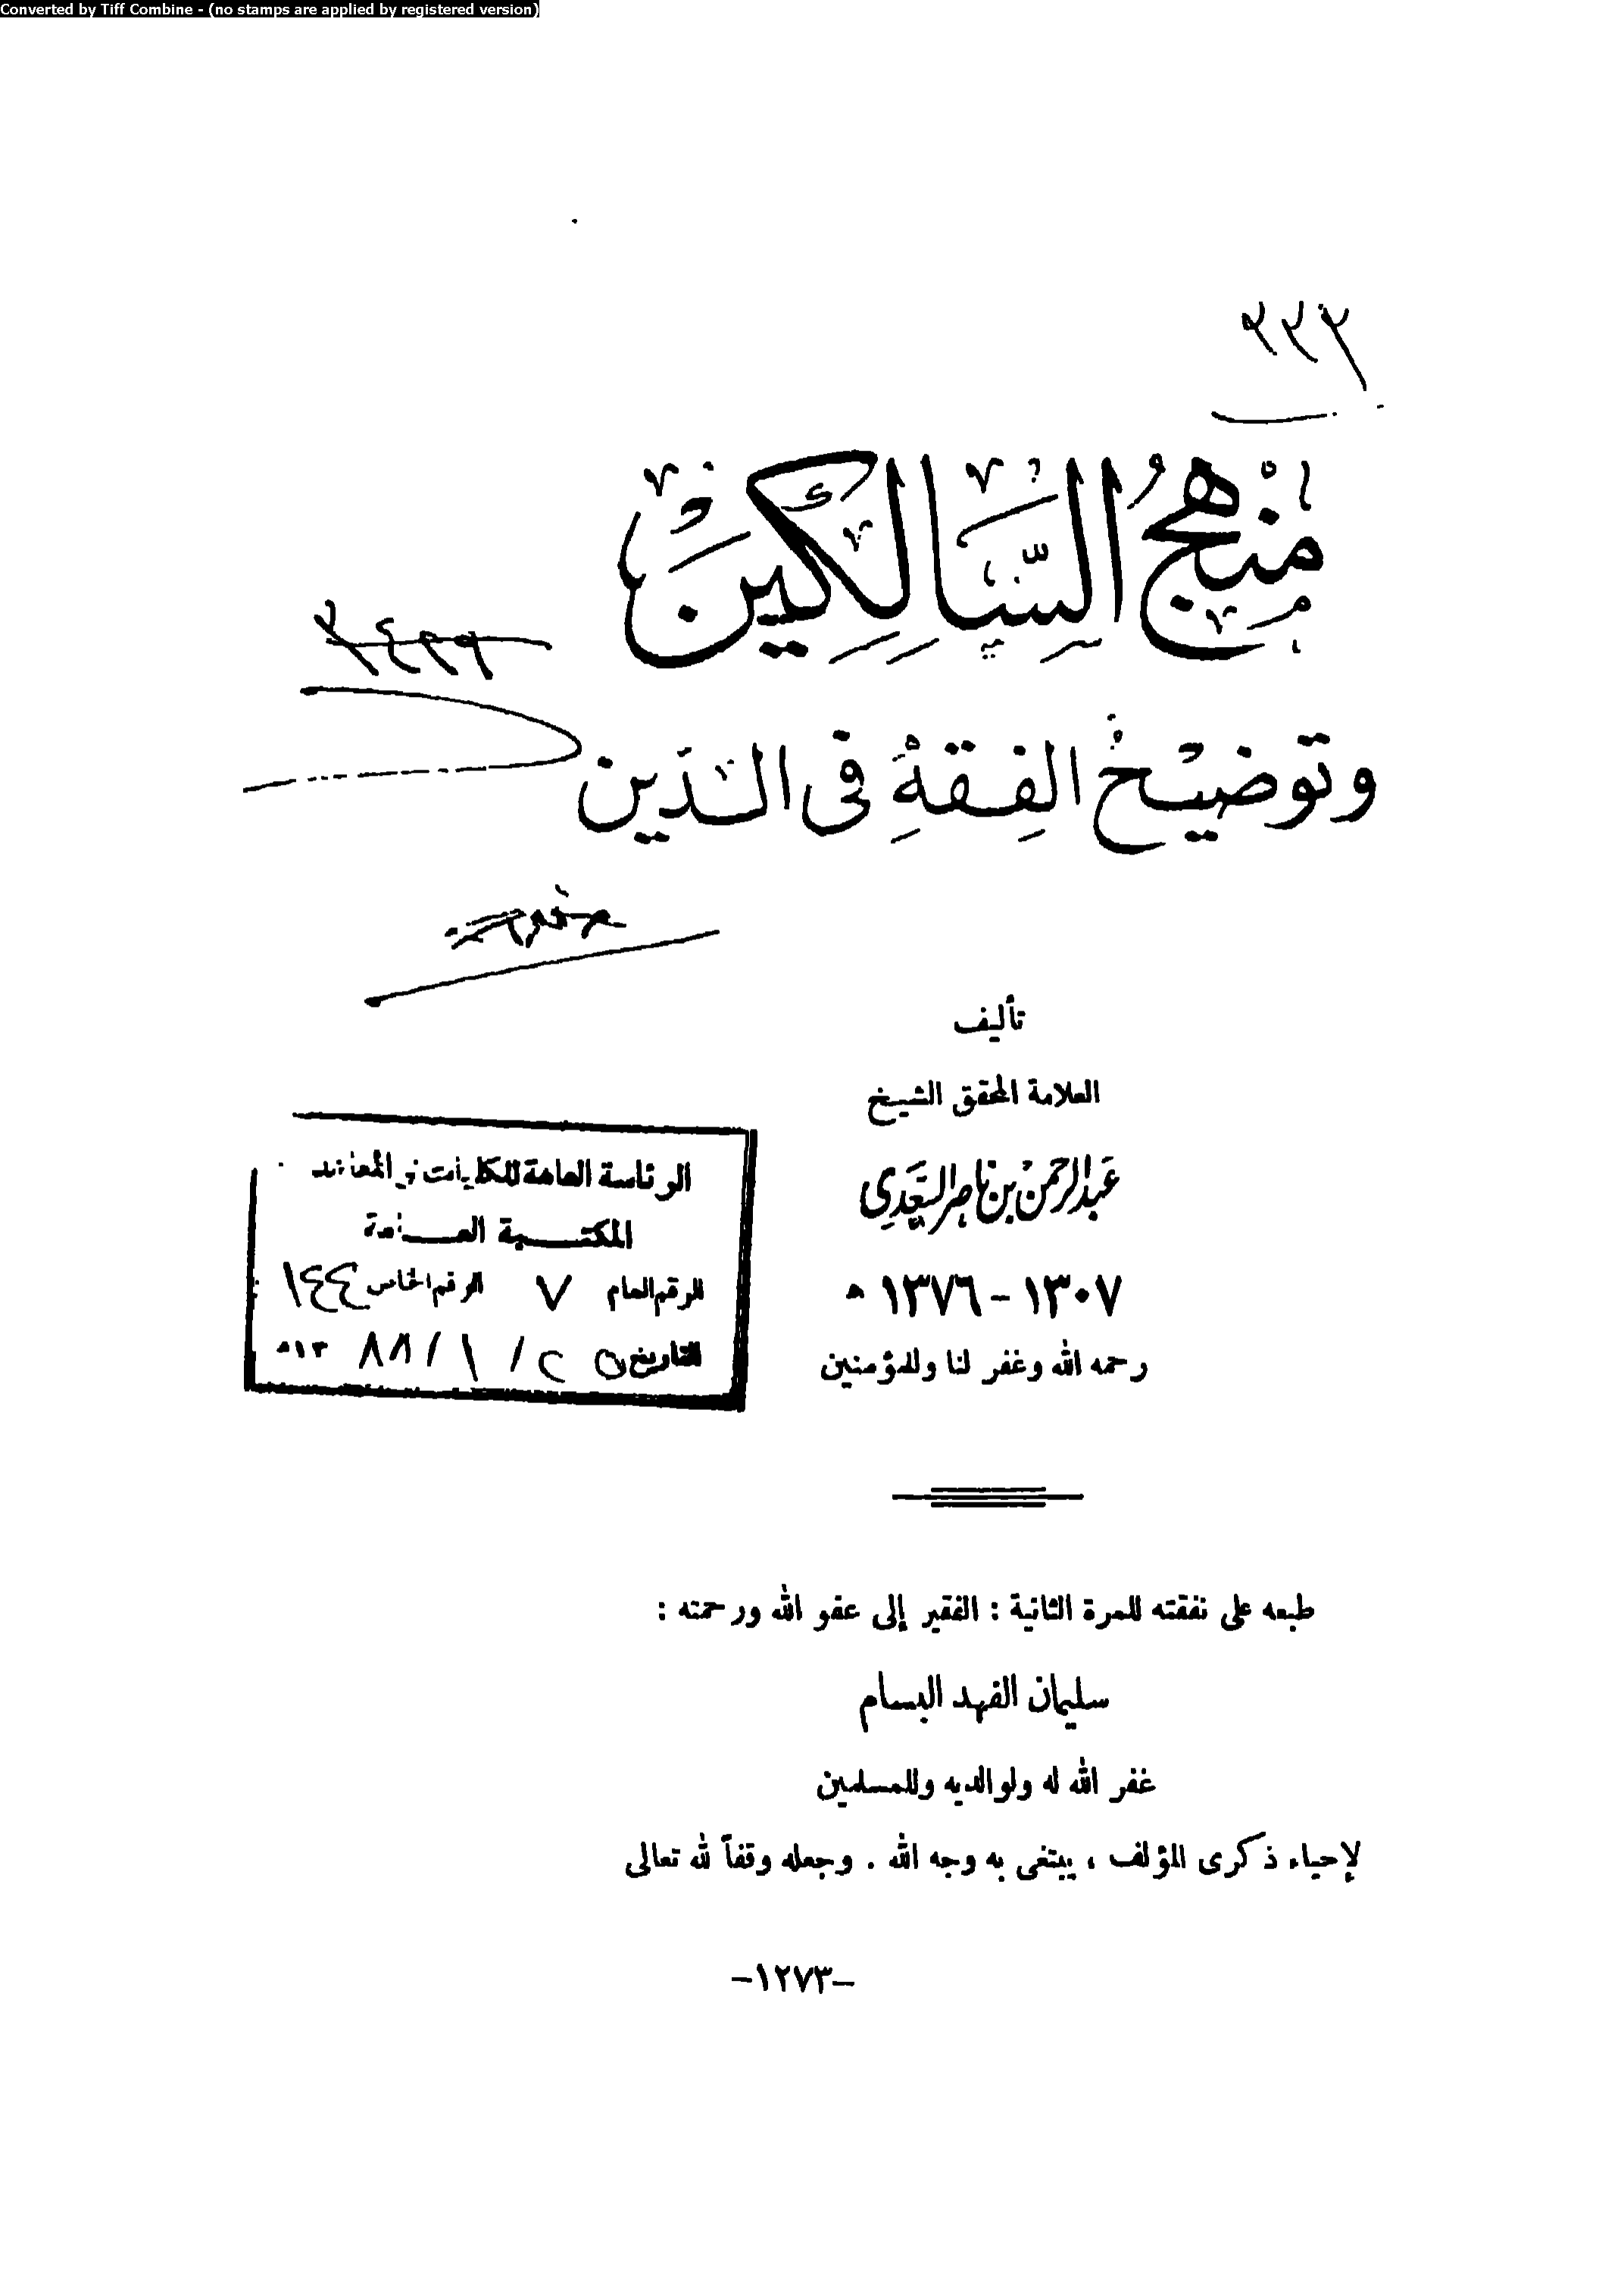 Converted by Tiff Combine - (no stamps are applied by registered version)
مَنْهَجُ السَّالِكِينَ
وتوضيح الفقه في الدين
تأليف
العلامة المحقق الشيخ
عبد الرحمن بن ناصر السعدي
١٣٠٧ - ١٣٧٦ هـ
رحمه الله وغفر لنا وللمؤمنين
الرئاسة العامة للكليات و المعاهد
المكتبة العامة
الرقم العام ٧ الرقم الخاص ١٤٤
التاريخ ٢٥ / ١ / ٨٨ ١٣هـ
طبعه على نفقته للمرة الثانية : الفقير إلى عفو الله ورحمته :
سليمان الفهد البسام
غفر الله له ولوالديه وللمسلمين
لإحياء ذكرى المؤلف ، يبتغى به وجه الله . وجعله وقفاً لله تعالى
-١٢٧٣-